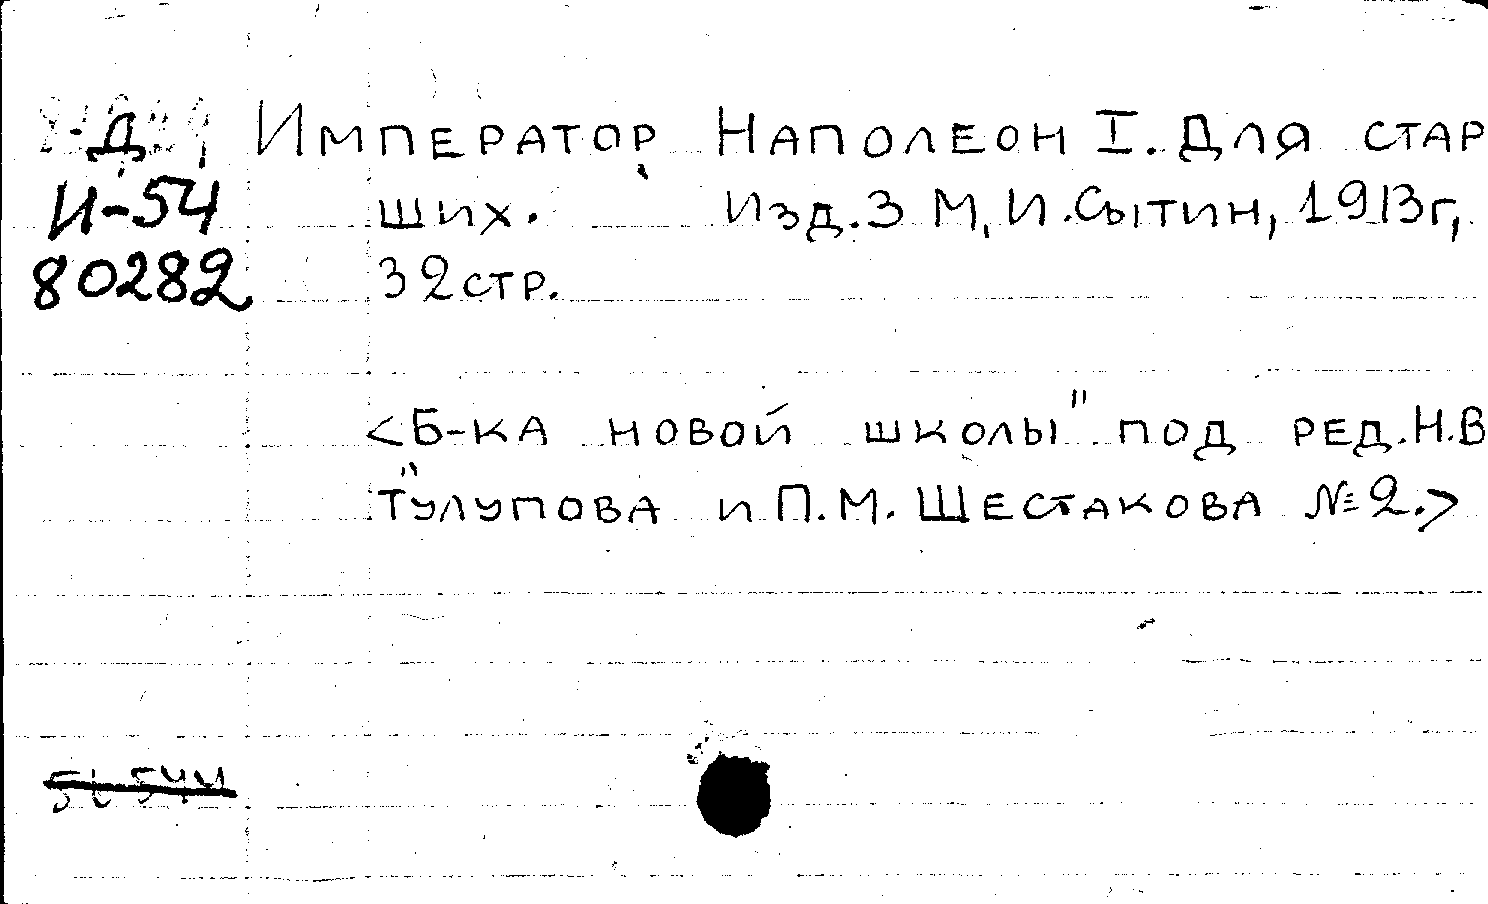 Д
И-54
80282
Император Наполеон I. Для стар
ших. Изд. 3 М, И. Сытин, 1913г,
32 стр.
<Б-ка новой школы" под ред. Н.В
"Тулупова и П.М. Шестакова №2.>